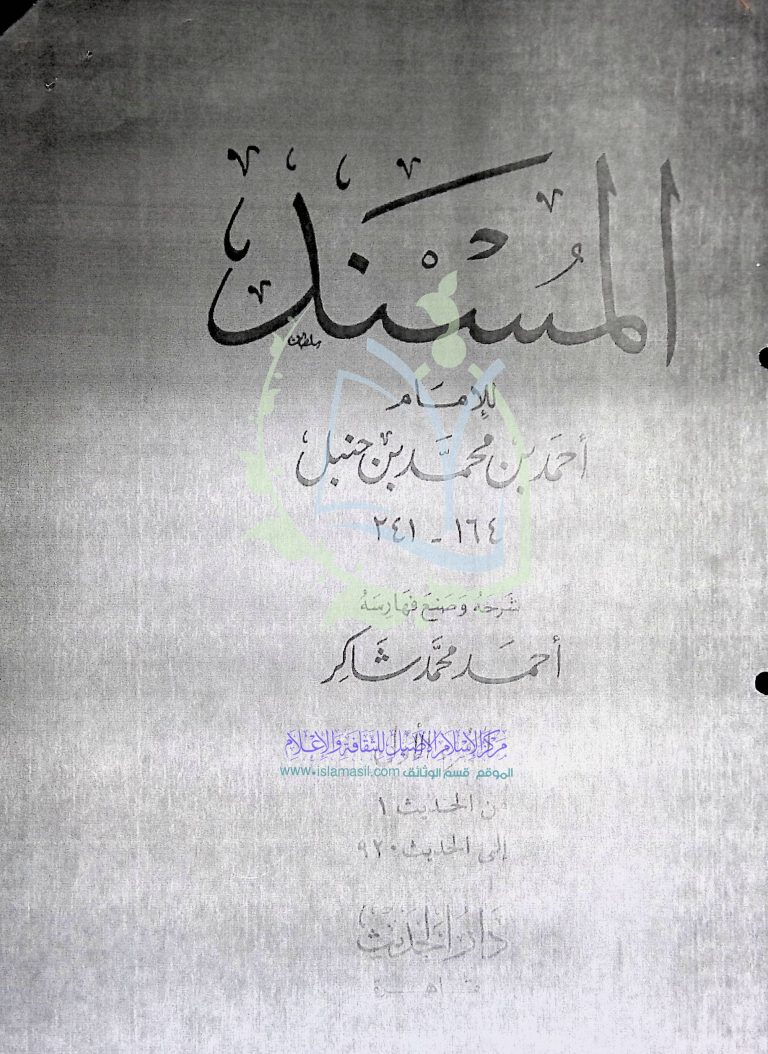 المُسْنَد
سلطان
للإمَام
أحمَد بن محمَّد بن حنبل
١٦٤ - ٢٤١
شَرحَهُ وَصَنعَ فهَارِسَهُ
أحمَد محمَّد شَاكِر
مركز الإسلام الأصيل للثقافة والإعلام
الموقع قسم الوثائق www.islamasil.com
من الحديث ١
إلى الحديث ٩٢٠
دَار الحَديث